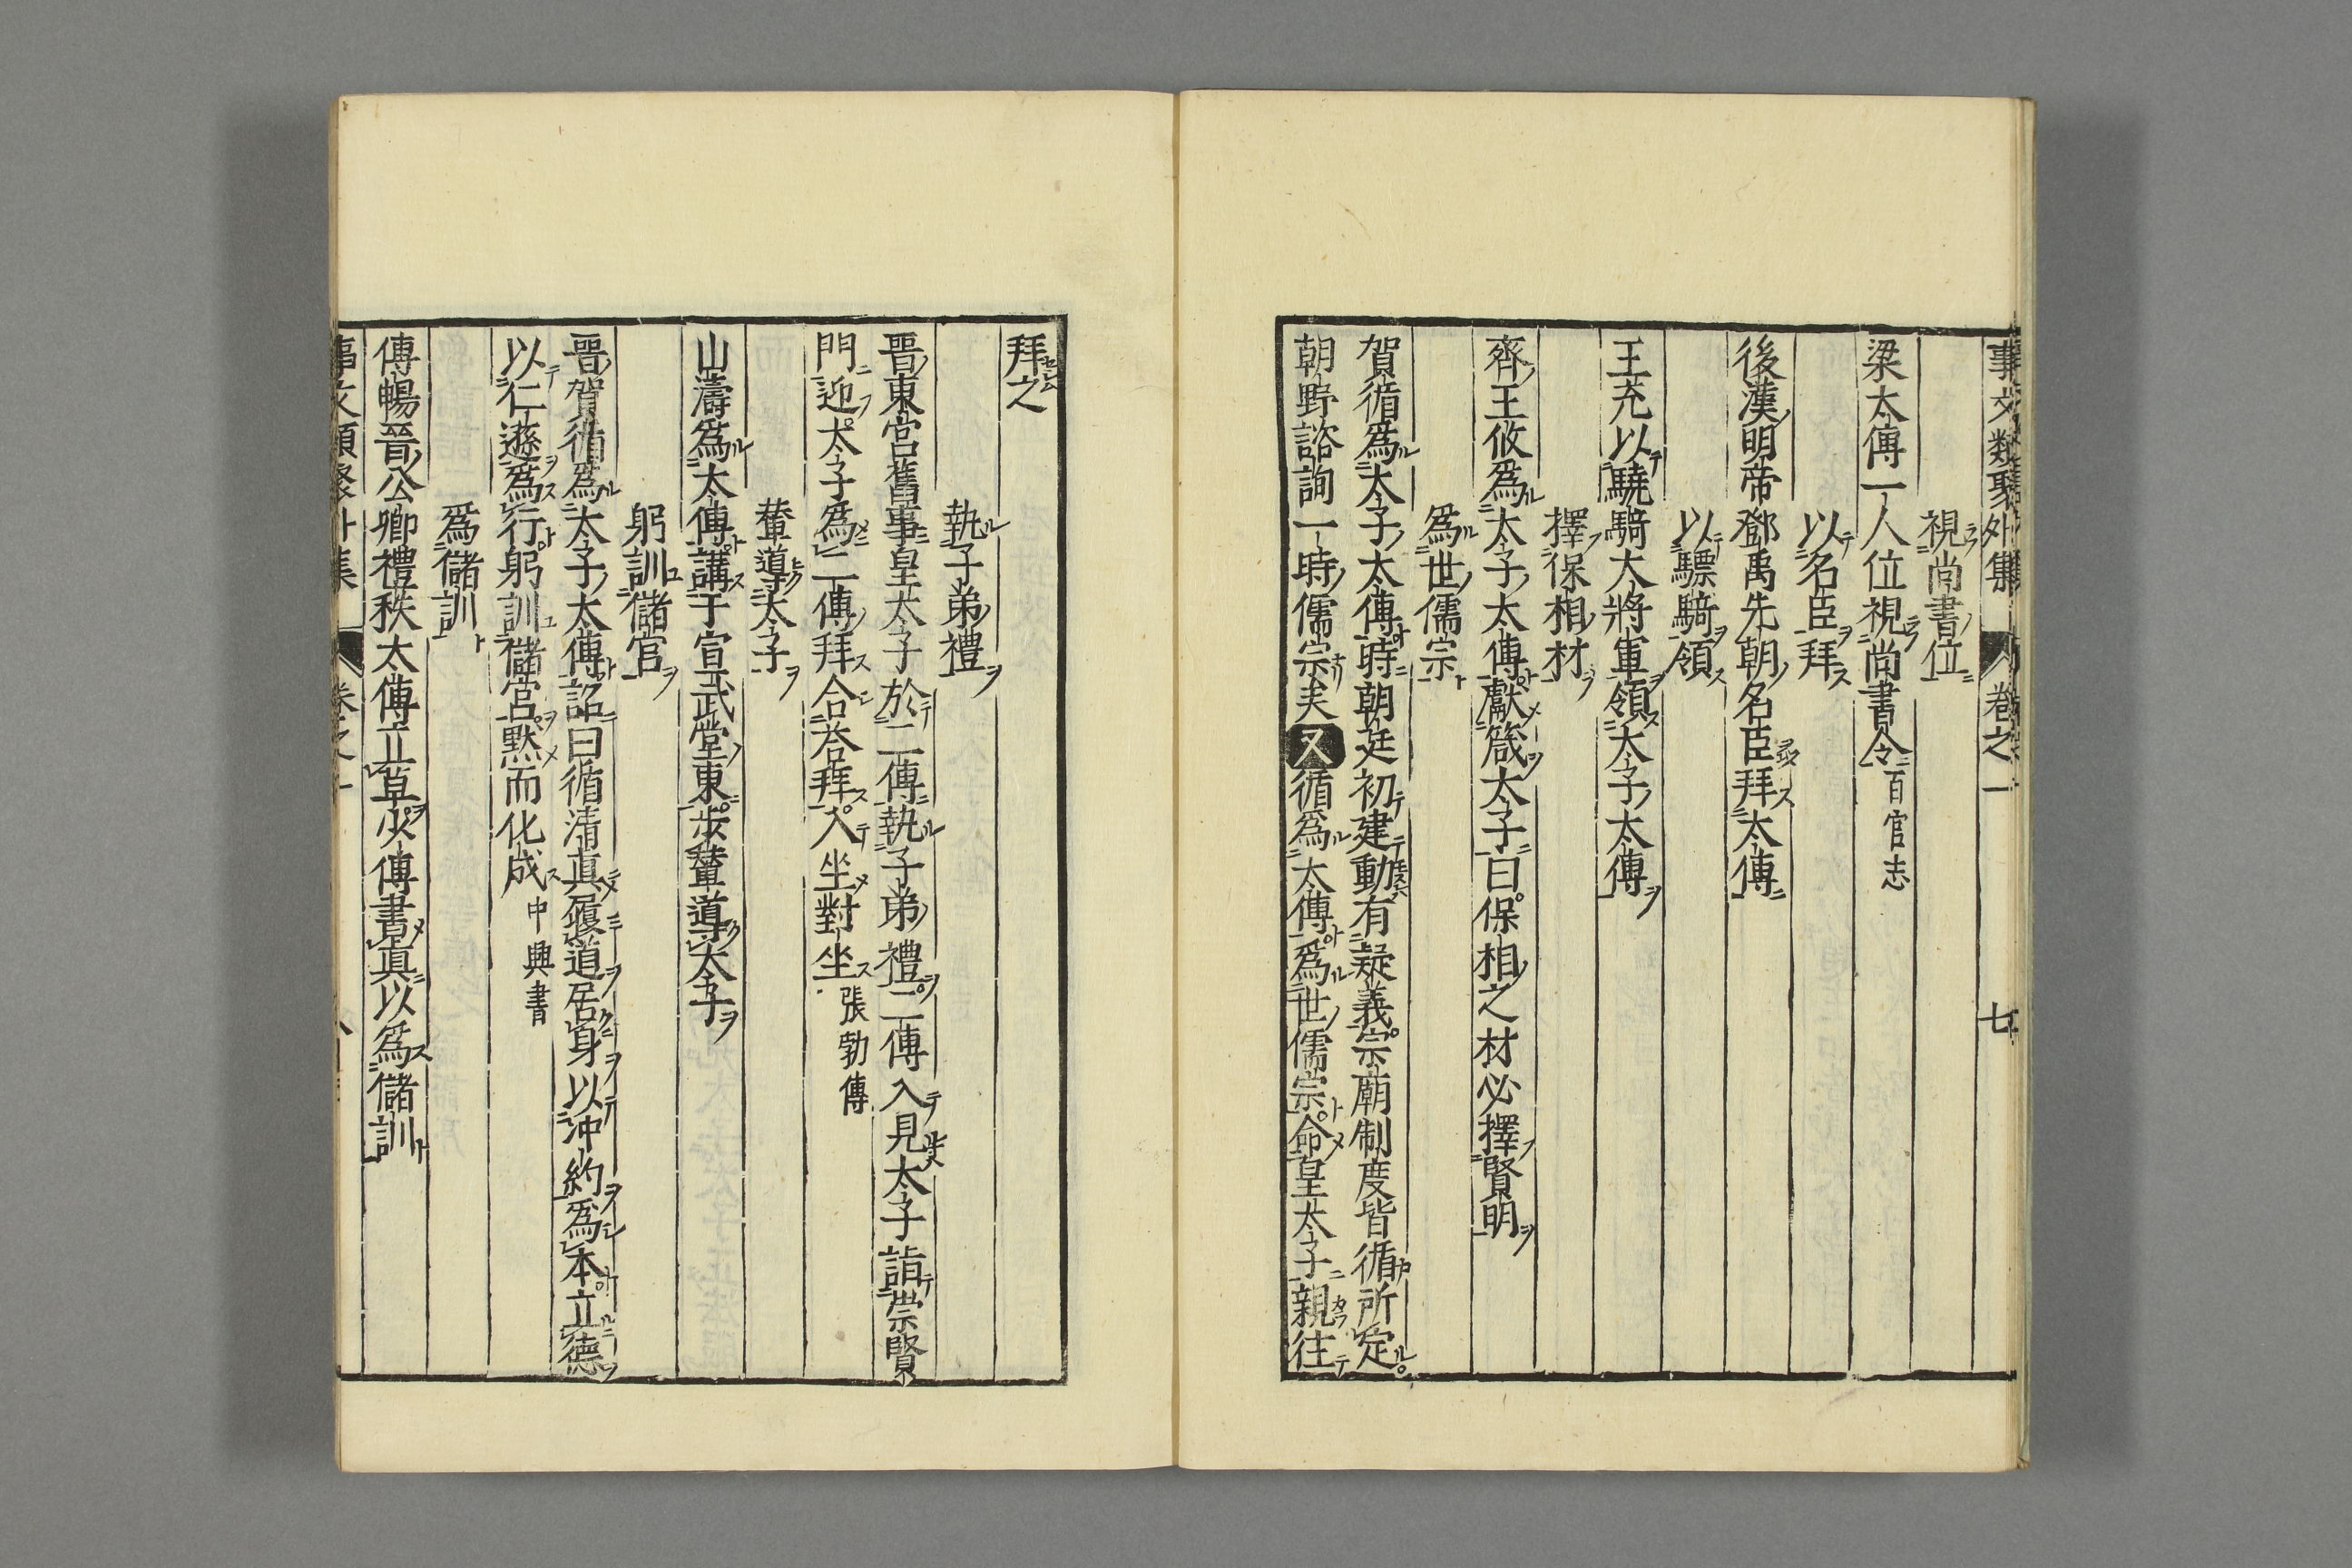 事文類聚外集 卷之一 七
視尚書位
梁太傅一人位視尚書令百官志
以名臣拜
後漢明帝鄧禹先朝名臣拜太傅
以驃騎領
王充以驍騎大將軍領太子太傅
擇保相材
齊王攸爲太子太傅獻箴太子曰保相之材必擇賢明
爲世儒宗
賀循爲太子太傅時朝廷初建動有疑義宗廟制度皆循所定
朝野諮詢一時儒宗矣又循爲太傅爲世儒宗命皇太子親往
拜之
執子弟禮
晉東宮舊事皇太子於二傅執子弟禮二傅入見太子詣崇賢
門迎太子爲二傅拜合荅拜入坐對坐張勃傳
輦導太子
山濤爲太傅講于宣武堂東步輦導太子
躬訓儲宮
晉賀循爲太子太傅詔曰循清真履道居身以沖約爲本立德
以仁遜爲行躬訓儲宮默而化成中興書
爲儲訓
傅暢晉公卿禮秩太傅立草少傅書真以爲儲訓
事文類聚外集 卷之一 八